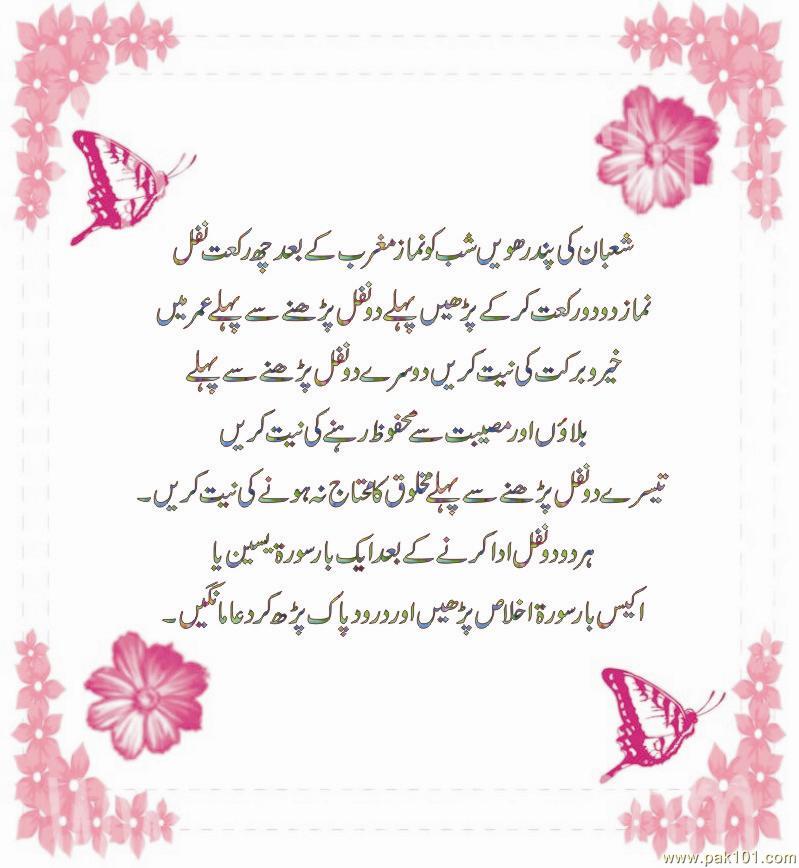 شعبان کی پندرھویں شب کو نماز مغرب کے بعد چھ رکعت نفل
نماز دو دو رکعت کر کے پڑھیں پہلے دو نفل پڑھنے سے پہلے عمر میں
خیر و برکت کی نیت کریں دوسرے دو نفل پڑھنے سے پہلے
بلاؤں اور مصیبت سے محفوظ رہنے کی نیت کریں
تیسرے دو نفل پڑھنے سے پہلے مخلوق کا محتاج نہ ہونے کی نیت کریں۔
ہر دو دو نفل ادا کرنے کے بعد ایک بار سورۃ یسین یا
اکیس بار سورۃ اخلاص پڑھیں اور درود پاک پڑھ کر دعا مانگیں۔
www.pak101.com